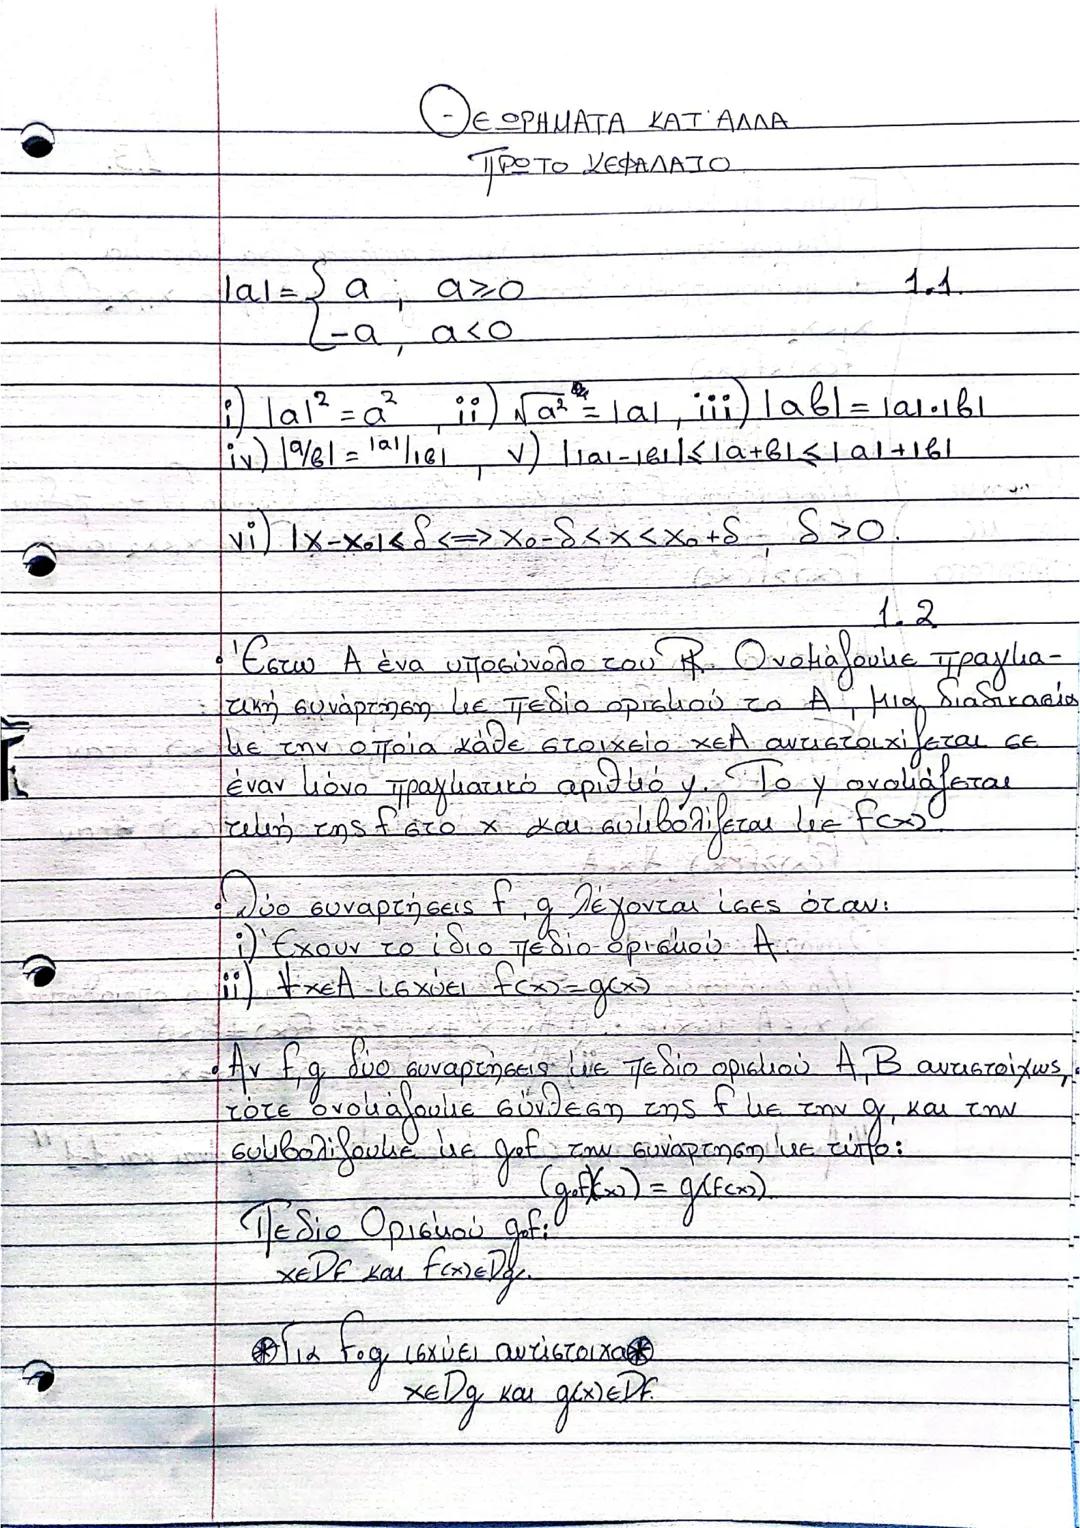 ΘΕΩΡΗΜΑΤΑ ΚΑΤ'ΑΛΛΑ
ΠΡΩΤΟ ΚΕΦΑΛΑΙΟ
1.1.
|α|= { α, α≥0
-α, α<0
i) |α|² = α² , ii) √α² = |α| , iii) |αβ| = |α|·|β|
iv) |α/β| = |α|/|β| , v) ||α|-|β||≤|α+β|≤|α|+|β|
vi) |x-x₀|<δ<=>x₀-δ<x<x₀+δ, δ>0.
1.2
• Έστω Α ένα υποσύνολο του ℝ. Ονομάζουμε πραγμα-
τική συνάρτηση με πεδίο ορισμού το Α, μια διαδικασία
με την οποία κάθε στοιχείο x∈A αντιστοιχίζεται σε
έναν μόνο πραγματικό αριθμό y. Το y ονομάζεται
τιμή της f στο x και συμβολίζεται με f(x)
• Δύο συναρτήσεις f, g λέγονται ίσες όταν:
i) Έχουν το ίδιο πεδίο ορισμού Α.
ii) ∀x∈A ισχύει f(x)=g(x)
• Αν f,g δύο συναρτήσεις με πεδίο ορισμού Α, Β αντιστοίχως,
τότε ονομάζουμε σύνθεση της f με την g, και την
συμβολίζουμε με gof την συνάρτηση με τύπο:
(gof)(x) = g(f(x)).
Πεδίο Ορισμού gof:
x∈Df και f(x)∈Dg.
⊛Για fog ισχύει αντίστοιχα⊛
x∈Dg και g(x)∈Df.